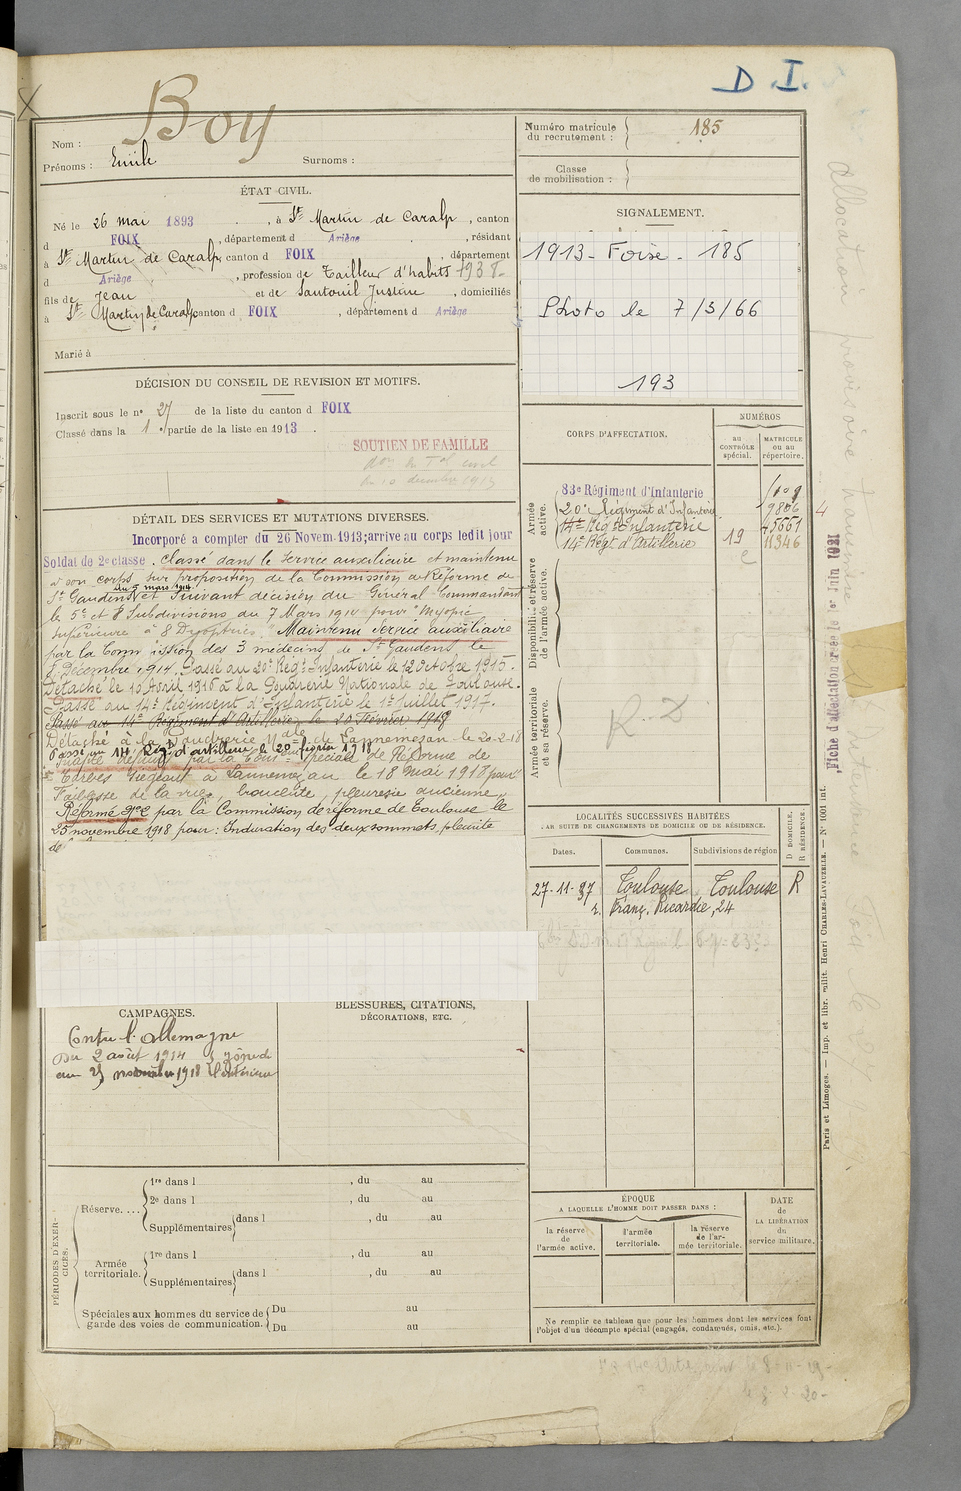 D.I.
Nom : Boy
Prénoms : Emile Surnoms :
ÉTAT CIVIL.
Né le 26 mai 1893, à St Martin de Caralp, canton
d FOIX, département d Ariège, résidant
à St Martin de Caralp, canton d FOIX, département
d Ariège, profession de Tailleur d'habits 1938-
fils de Jean et de Santouil Justine, domiciliés
à St Martin de Caralp canton d FOIX, département d Ariège
Marié à
DÉCISION DU CONSEIL DE REVISION ET MOTIFS.
Inscrit sous le n° 27 de la liste du canton d FOIX
Classé dans la 1e partie de la liste en 1913.
SOUTIEN DE FAMILLE
10 décembre 1913
DÉTAIL DES SERVICES ET MUTATIONS DIVERSES.
Incorporé a compter du 26 Novem. 1913; arrive au corps ledit jour
Soldat de 2e classe. Classé dans le Service auxiliaire et maintenu
à son corps sur proposition de la Commission de Réforme de
St Gaudens du 5 mars 1914 et suivant décision du Général Commandant
le 5e et 8 Subdivisions du 7 Mars 1914 pour "Myopie
supérieure à 8 Dioptries. Maintenu Service auxiliaire
par la Commission des 3 médecins de St Gaudens le
Décembre 1914. Passé au 20e Rég. Infanterie le 12 octobre 1915.
Détaché le 10 Avril 1916 à la Poudrerie Nationale de Toulouse.
Passé au 14e Régiment d'Infanterie le 1er Juillet 1917.
Passé au 14e Régiment d'Artillerie le 20 Février 1918
Détaché à la Poudrerie Nale de Lannemezan le 20-2-18
Passé au 14e Régt d'artillerie le 20 février 1918
par la Comon spéciale de Réforme de
Tarbes siégeant à Lannemezan le 18 Mai 1918 pour
Faiblesse de la vue, bronchite, pleurésie ancienne.
Réformé n° 2 par la Commission de réforme de Toulouse le
25 novembre 1918 pour : Induration des deux sommets, pleurite
CAMPAGNES.
Contre l'Allemagne
Du 2 août 1914 } zône de
au 25 novembre 1918 l'intérieur
BLESSURES, CITATIONS,
DÉCORATIONS, ETC.
PÉRIODES D'EXERCICES.
Réserve....
1re dans l , du au
2e dans l , du au
Supplémentaires dans l , du au
Armée territoriale.
1re dans l , du au
Supplémentaires dans l , du au
Spéciales aux hommes du service de garde des voies de communication.
Du au
Du au
Numéro matricule du recrutement : 185
Classe de mobilisation :
SIGNALEMENT.
1913 - Foix - 185
Photo le 7/3/66
193
CORPS D'AFFECTATION.
NUMÉROS
AU CONTRÔLE spécial.
MATRICULE ou au répertoire.
Armée active.
83e Régiment d'Infanterie
20e Régiment d'Infanterie 9806
14e Rég. Infanterie 19 45661
14e Régt d'Artillerie 11346
Disponibilité et réserve de l'armée active.
Armée territoriale et sa réserve.
R. 2
LOCALITÉS SUCCESSIVES HABITÉES
PAR SUITE DE CHANGEMENTS DE DOMICILE OU DE RÉSIDENCE.
Dates. Communes. Subdivisions de région
D DOMICILE.
R RÉSIDENCE.
27-11-37 Toulouse Toulouse R
r. Franç. Ricardie, 24
ÉPOQUE
A LAQUELLE L'HOMME DOIT PASSER DANS :
la réserve de l'armée active.
l'armée territoriale.
la réserve de l'armée territoriale.
DATE de LA LIBÉRATION du service militaire.
Ne remplir ce tableau que pour les hommes dont les services font
l'objet d'un décompte spécial (engagés, condamnés, omis, etc.).
allocation provisoire
Fiche d'affectation créée le 1er Juin 1921
Paris et Limoges. — Imp. et libr. milit. Henri CHARLES-LAVAUZELLE. — N° 1001 int.